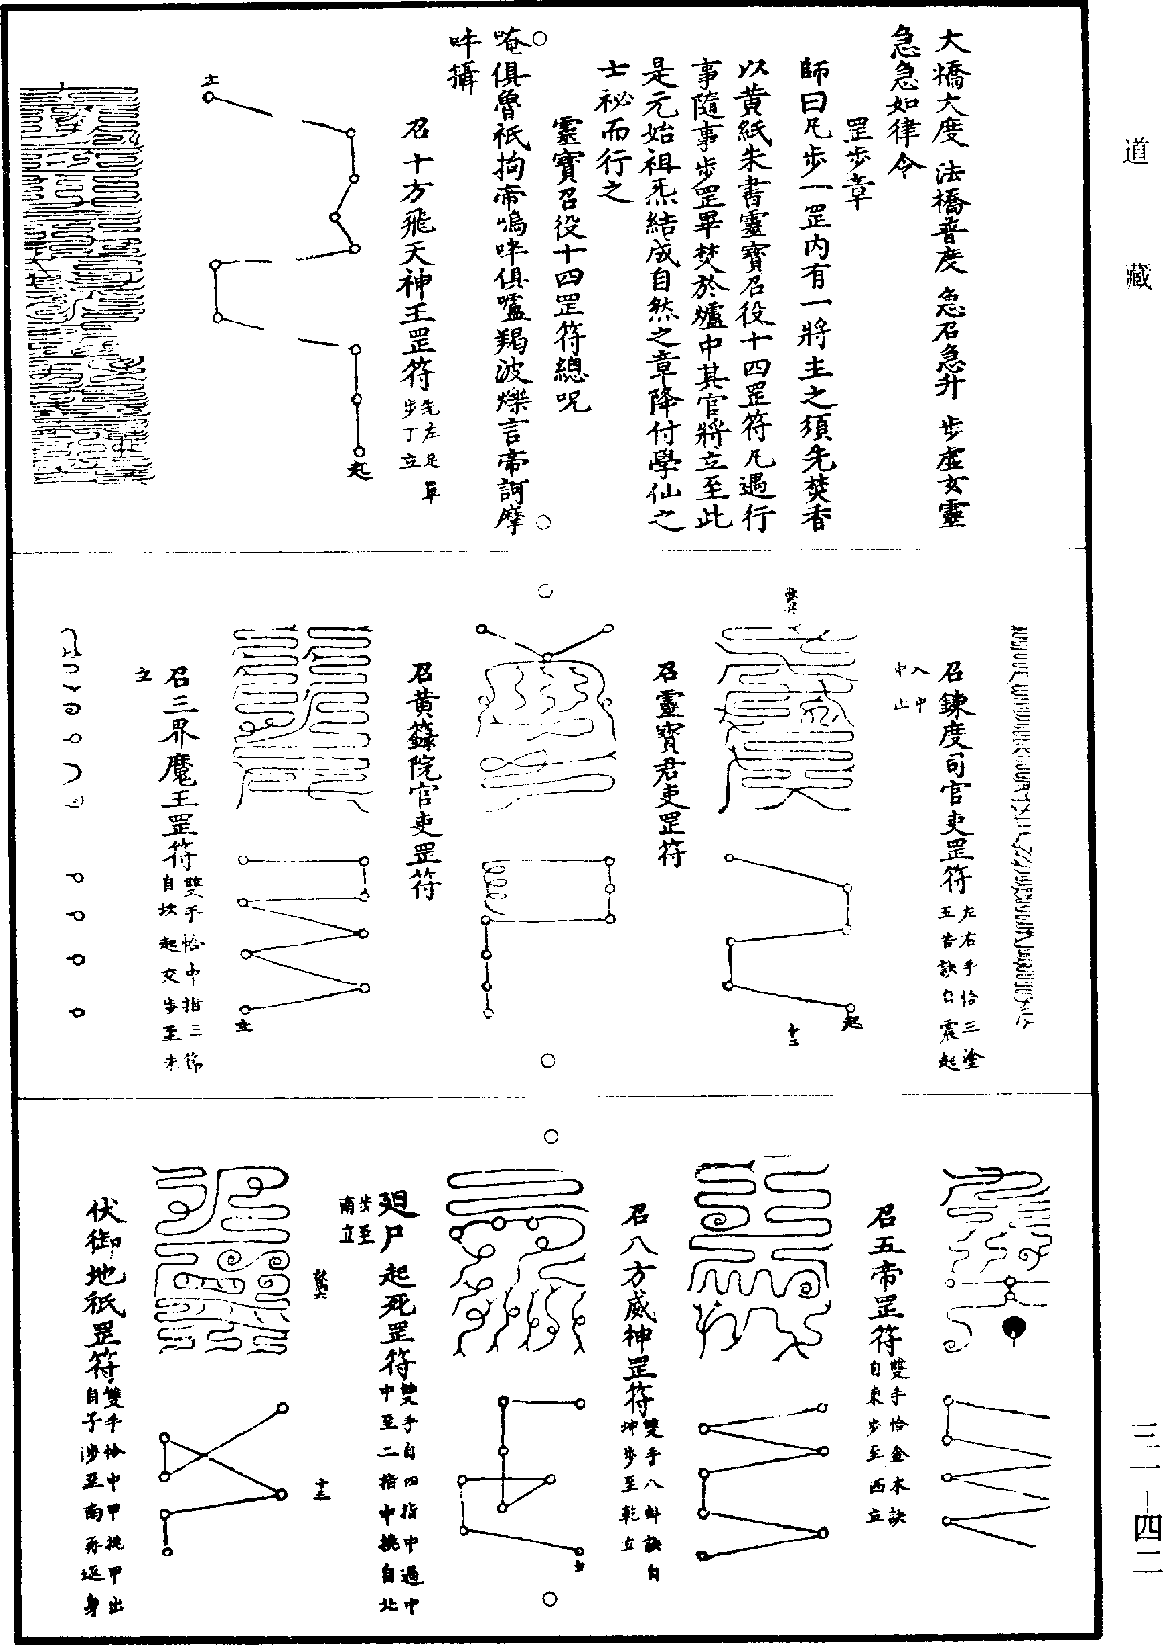 道藏
大橋大度 法橋普度 急召急升 步虛玄靈
急急如律令
罡步章
師曰凡步一罡内有一將主之須先焚香
以黄紙朱書靈寶召役十四罡符凡遇行
事隨事步罡畢焚於爐中其官將立至此
是元始祖炁結成自然之章降付學仙之
士祕而行之
靈寶召役十四罡符總呪
唵俱魯祇拘帝嗚吽俱嚧羯波爍言帝訶摩
吽攝
召十方飛天神王罡符 先左足單
步丁立
起
士
召鍊度司官吏罡符 左右手恰三塗
五苦訣自震起
入中
中山
起
十二
召靈寶君吏罡符
召黄籙院官吏罡符
立
召三界魔王罡符 雙手恰中指三節
自坎起交步至未
立
召五帝罡符 雙手恰金木訣
自東步至西立
召八方威神罡符 雙手八卦訣自
坤步至乾立
立
廻尸起死罡符 雙手自四指中過中
中至二指中挑自北
步至
南立
十三
伏御地祇罡符 雙手恰中甲挑甲出
自子步至南再逥身
三二—四二